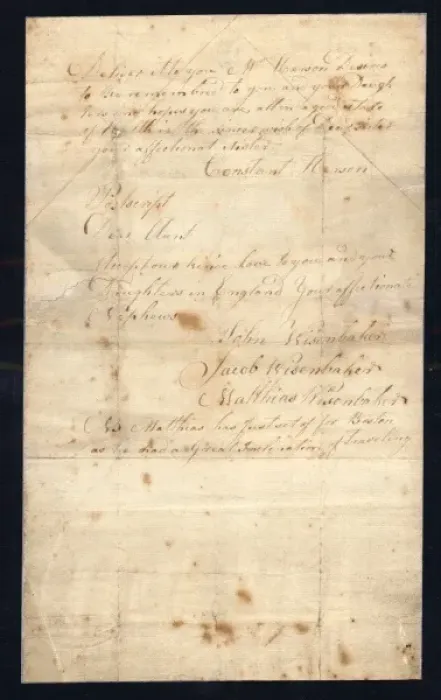 to you Mr Hewson Desires
to be remembered to you and your Daugh
ters and hopes you are all in a good state
of Health is the sincere wish of
your affectionat Sister
Constant Hewson
Postscript
Dear Aunt
Accept our Love to you and your
Daughters in England Your affectionat
Nephews
John Wisenbaker
Jacob Wisenbaker
Matthias Wisenbaker
Matthias has just set of for Boston
as he had a Great Inclination of Traveling